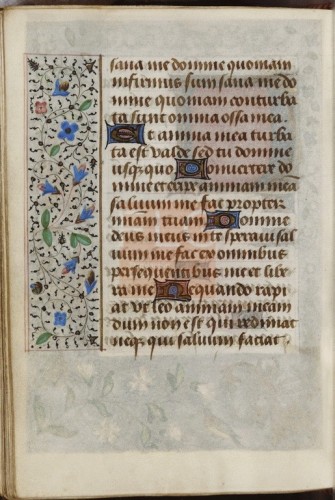 sana me domine quoniam
infirmus sum sana me do
mine quoniam conturba
ta sunt omnia ossa mea.
Et anima mea turba
ta est valde sed tu domine
usquequo Convertere do
mine et eripe animam meam
salvum me fac propter
miam tuam Domine
deus meus in te speravi sal
vum me fac ex omnibus
persequentibus me et libe
ra me Nequando rapi
at ut leo animam meam
dum non est qui redimat
neque qui salvum faciat.